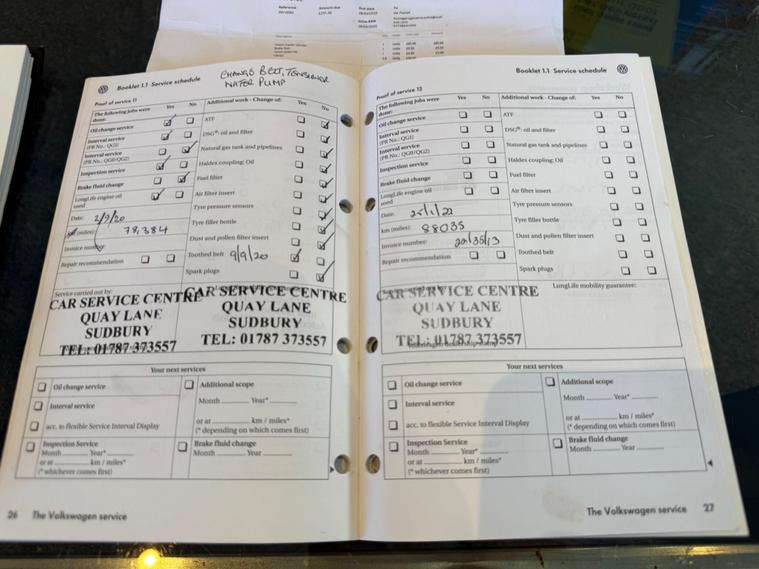 Reference
Amount due
Due date
To
Booklet 1.1 Service schedule
CHANGE BELT, TENSIONER
WATER PUMP
Proof of service 11
The following jobs were done: Yes No
Oil change service
Interval service
(PR No.: QG1)
Interval service
(PR No.: QG0/QG2)
Inspection service
Brake fluid change
LongLife engine oil
used
Date: 2/9/20
(miles): 78,384
Invoice number:
Repair recommendation
Additional work - Change of: Yes No
ATF
DSG®: oil and filter
Natural gas tank and pipelines
Haldex coupling: Oil
Fuel filter
Air filter insert
Tyre pressure sensors
Tyre filler bottle
Dust and pollen filter insert
Toothed belt 9/9/20
Spark plugs
Service carried out by:
CAR SERVICE CENTRE
QUAY LANE
SUDBURY
TEL: 01787 373557
CAR SERVICE CENTRE
QUAY LANE
SUDBURY
TEL: 01787 373557
Your next services
Oil change service
Interval service
acc. to flexible Service Interval Display
Inspection Service
Month Year*
or at km / miles*
(* whichever comes first)
Additional scope
Month Year*
or at km / miles*
(* depending on which comes first)
Brake fluid change
Month Year
26 The Volkswagen service
Booklet 1.1 Service schedule
Proof of service 12
The following jobs were done: Yes No
Oil change service
Interval service
(PR No.: QG1)
Interval service
(PR No.: QG0/QG2)
Inspection service
Brake fluid change
LongLife engine oil
used
Date:
km (miles): 88035
Invoice number:
Repair recommendation
Additional work - Change of: Yes No
ATF
DSG®: oil and filter
Natural gas tank and pipelines
Haldex coupling: Oil
Fuel filter
Air filter insert
Tyre pressure sensors
Tyre filler bottle
Dust and pollen filter insert
Toothed belt
Spark plugs
CAR SERVICE CENTRE
QUAY LANE
SUDBURY
TEL: 01787 373557
LongLife mobility guarantee:
Your next services
Oil change service
Interval service
acc. to flexible Service Interval Display
Inspection Service
Month Year*
or at km / miles*
(* whichever comes first)
Additional scope
Month Year*
or at km / miles*
(* depending on which comes first)
Brake fluid change
Month Year
The Volkswagen service 27